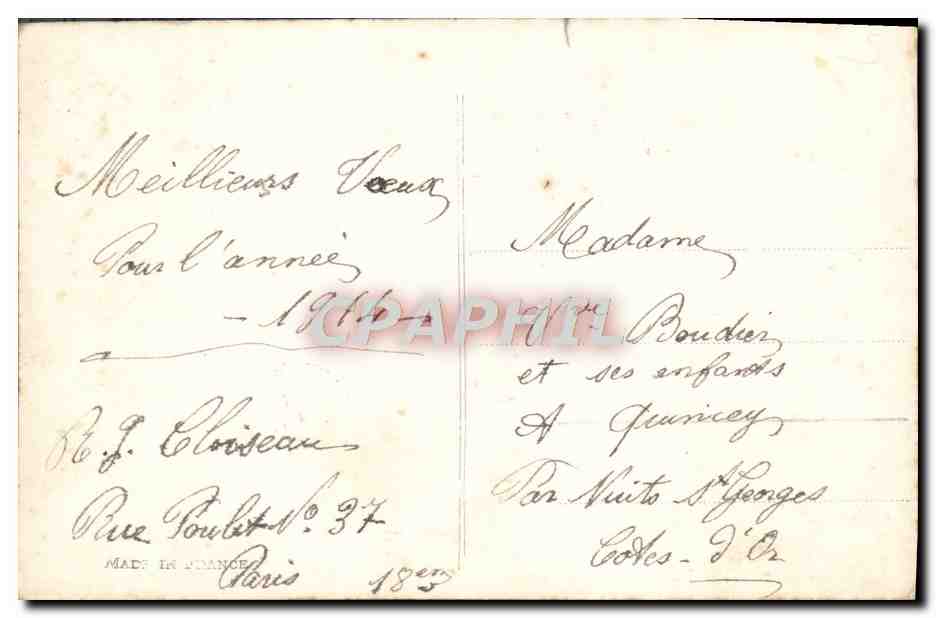 Meillieurs Vœux
Pour l'année
- 1914 -
R. J. Cloiseau
Rue Poulet No. 37
Paris 18em
MADE IN FRANCE
Madame
Vve Boudier
et ses enfants
A Quincey
Par Nuits St Georges
Cotes-d'Or
CPAPHIL